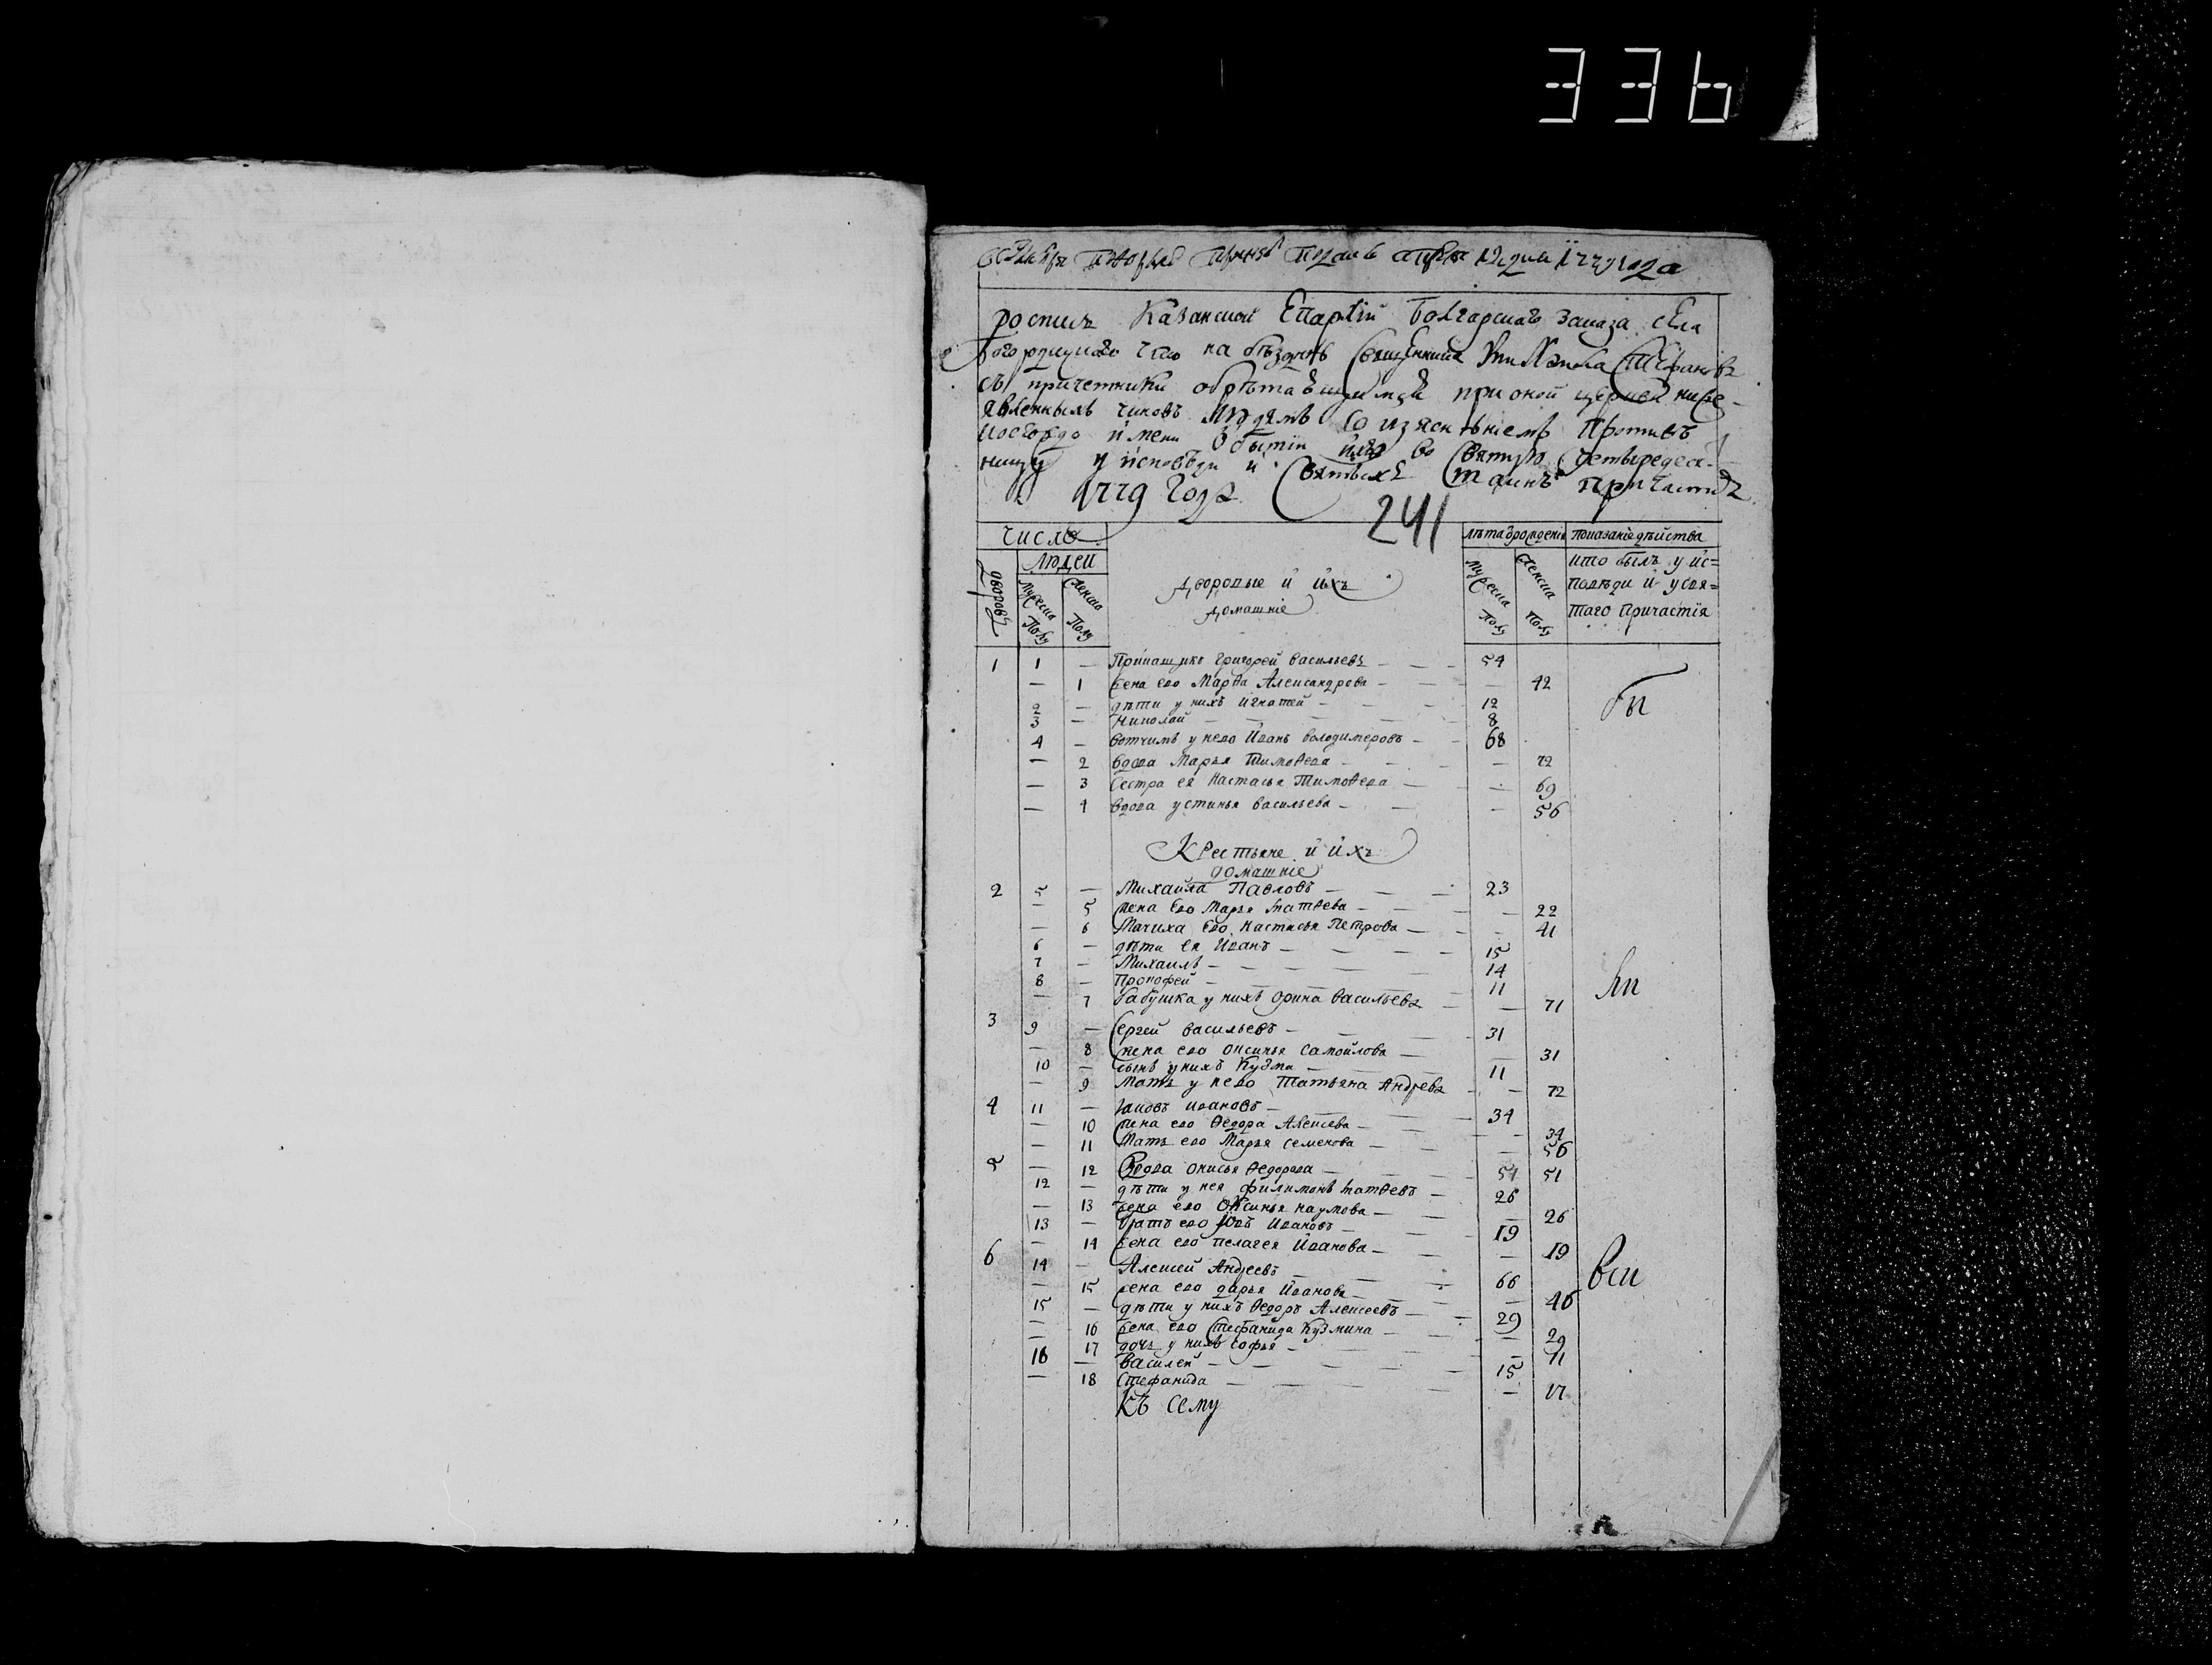 336
роспись Казанской Епархїи Болгарскаго заказа села
Богородицкаго что на бѣзднѣ священника Стефановъ
съ причетники обрѣтающимся при оной церкви ниже-
явленныхъ чиновъ людямъ со изяснѣниемъ противъ
коегождо имени о бытїи ихъ во святую четыредеся-
ницу у исповѣди и святыхъ таинъ причастия
1779 года
241
число
людей
дворовъ
мужеска полу
женска полу
дворовые и ихъ
домашнїе
лѣта рожденїя
мужеска полу
женска полу
показанїе дѣйства
кто былъ у ис=
повѣди и у свя=
таго причастїя
1 1 — Прикащикъ григорей васильевъ — — — 54
— 1 жена ево Марѳа Александрова — — — 42
2 — дѣти у нихъ игнатей — — — 12
3 — Николай — — — 8
4 — вотчимъ у нево Иванъ володимеровъ — 68
— 2 вдова Марья Тимоѳева — — — 72
— 3 сестра ея Настасья Тимоѳева — — 69
— 4 вдова устинья васильева — — — 56
бы
Крестьяне и ихъ
домашнїе
2 5 — Михайла Павловъ — — — 23
— 5 жена Ево Марья матѳева — — — 22
— 6 Мачиха Ево Настасья Петрова — — 41
6 — дѣти ея Иванъ — — — 15
7 — Михаилъ — — — 14
8 — Прокофей — — — 11
— 7 бабушка у нихъ орина васильевъ — — 71
3 9 — Сергей васильевъ — — — 31
— 8 жена ево оксинья самойлова — — 31
10 — сынъ у нихъ Кузма — — — 11
— 9 мать у нево Татьяна Андревъ — — 72
4 11 — Яковъ ивановъ — — — 34
— 10 жена ево ѳедора Алексева — — — 34
— 11 Мать ево Марья семенова — — 56
5 — 12 Вдова онисья ѳедорова — — 54 51
12 — дѣти у нея филимонъ матѳевъ — 26
— 13 жена ево оксинья наумова — — 26
13 — братъ ево Ивановъ — — 19
— 14 жена ево пелагея Иванова — — 19
6 14 — Алексей Андреевъ — — 66
— 15 жена ево дарья Иванова — — — 46
15 — дѣти у нихъ ѳедоръ Алексеевъ — 29
— 16 жена ево Стефанида Кузмина — — 29
— 17 дочь у нихъ софья — — — 11
16 — василей — — — 15
— 18 Стефанида — — — 17
вси
Къ сему